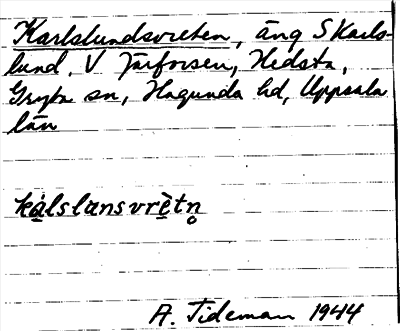 Karlslundsvreten, äng S Karls-
lund, V Järforsen, Hedsta,
Gryta sn, Hagunda hd, Uppsala
län
kạ̊lslansvrètn̥
A. Tideman 1944